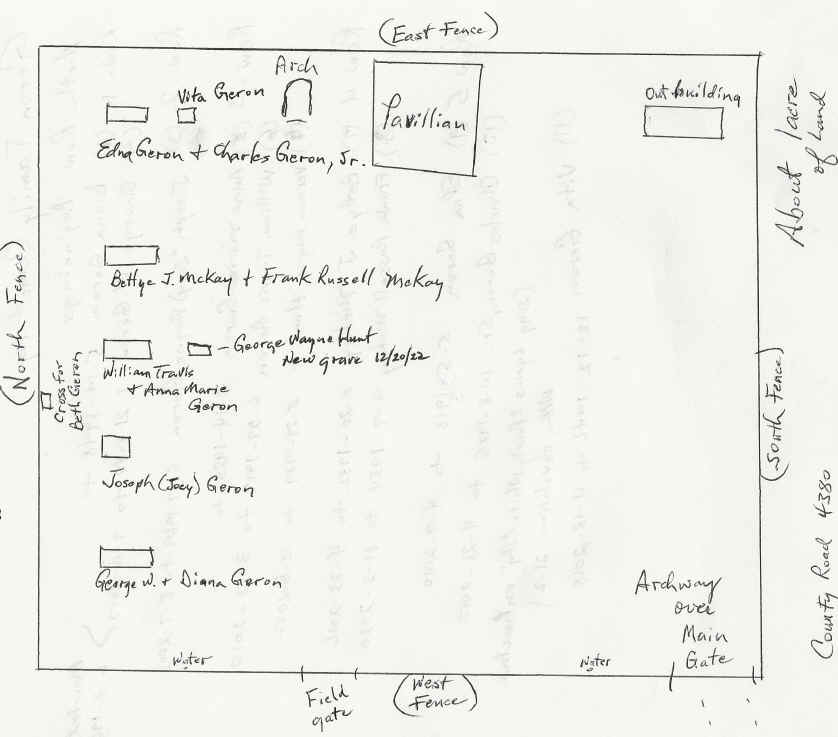 (East Fence)
Arch
Vita Geron
Pavillian
Out building
Edna Geron + Charles Geron, Jr.
About 1 acre
of Land
(North Fence)
Bettye J. McKay + Frank Russell McKay
George Wayne Hunt
New grave 12/20/22
William Travis
+ Anna Marie
Geron
Cross for
Beth Geron
(South Fence)
Joseph (Joey) Geron
County Road 4380
George W. + Diana Geron
Archway
over
Main
Gate
Water
Water
Field
gate
(West
Fence)